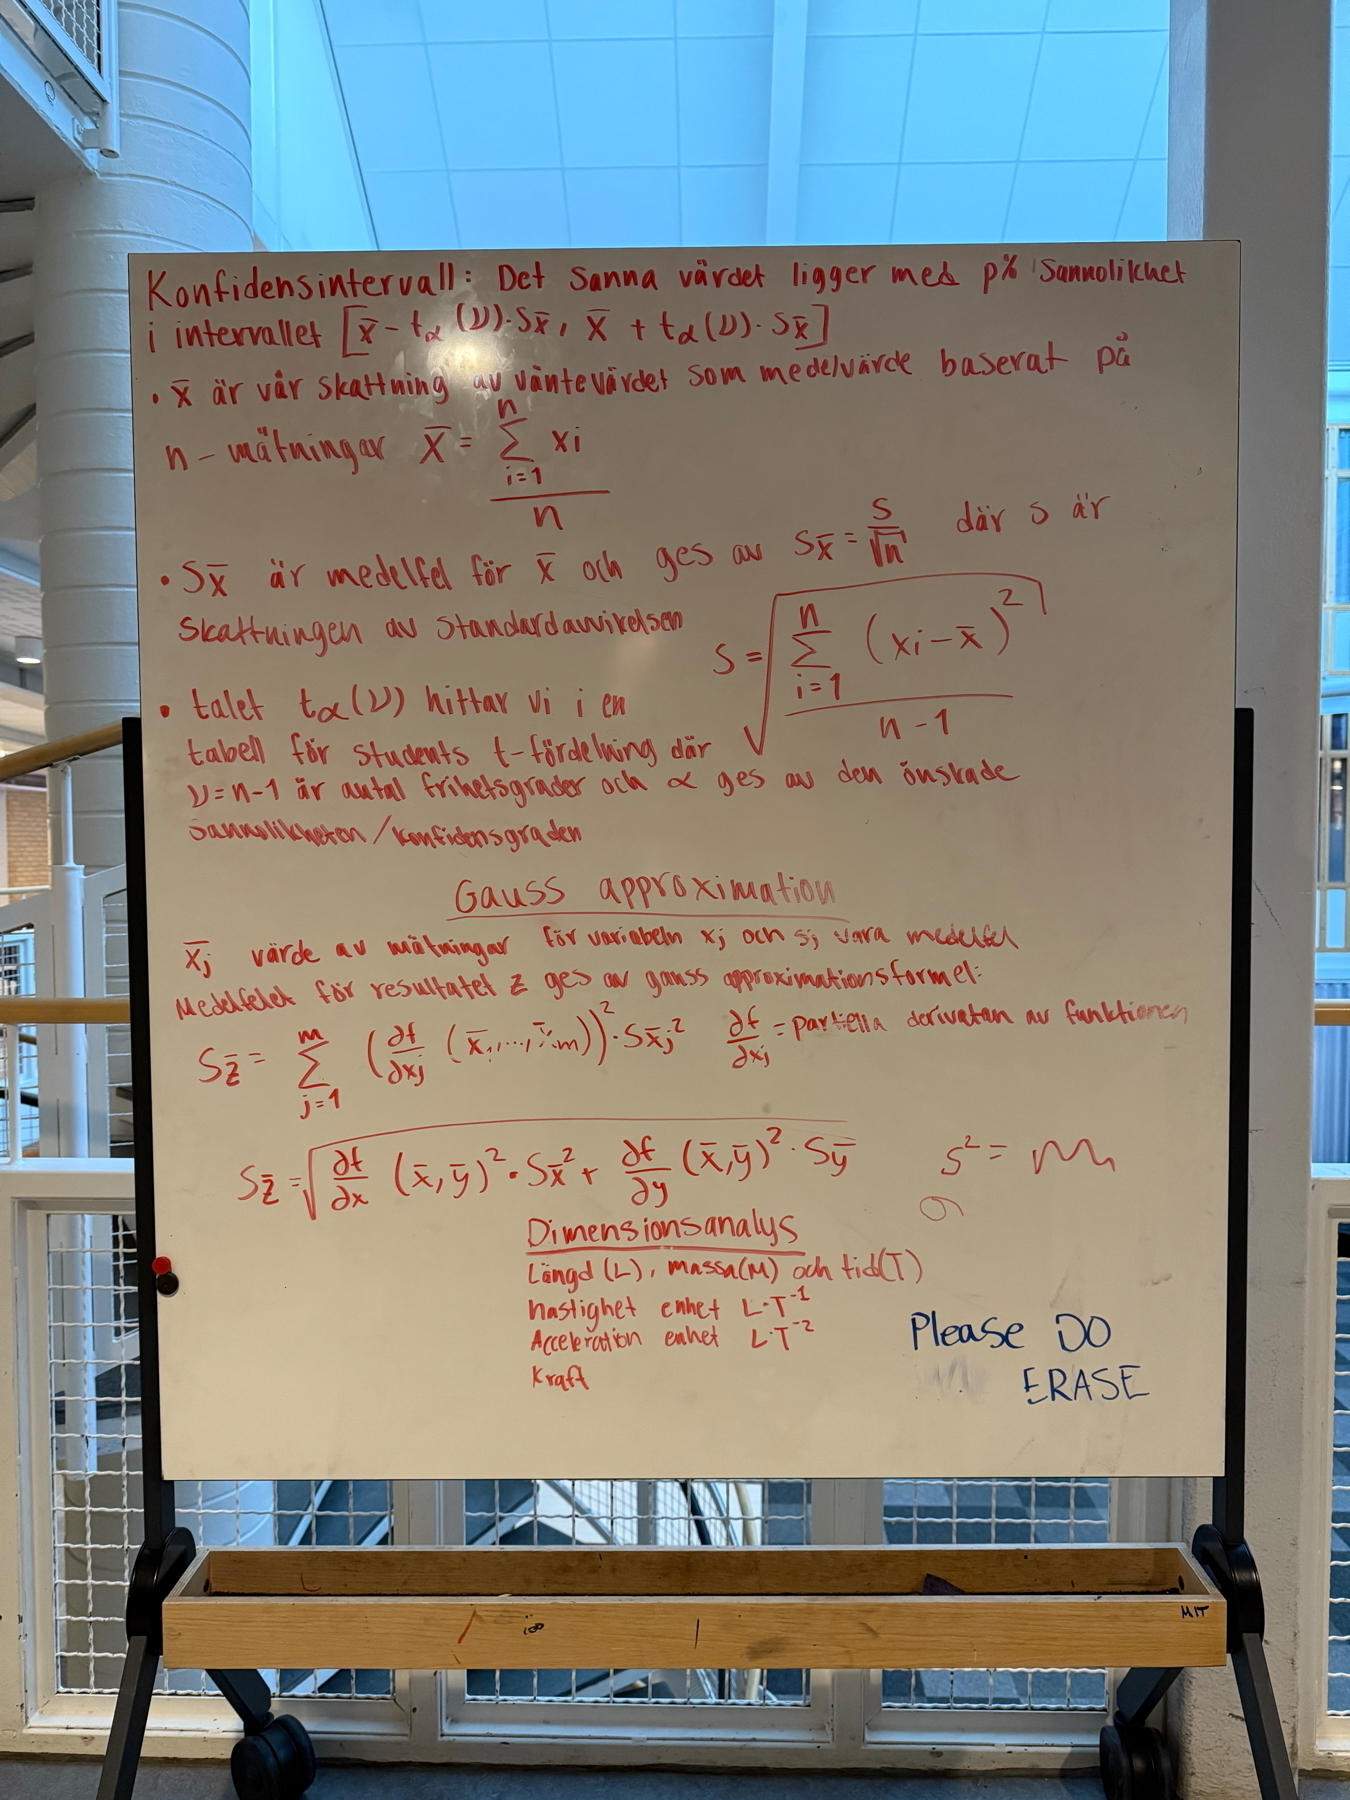 Konfidensintervall: Det sanna värdet ligger med p% sannolikhet
i intervallet [x̄ - tα(ν)·Sx̄, x̄ + tα(ν)·Sx̄]
• x̄ är vår skattning av väntevärdet som medelvärde baserat på
n - mätningar x̄ = \frac{\sum_{i=1}^{n} xi}{n}
• Sx̄ är medelfel för x̄ och ges av Sx̄ = \frac{S}{\sqrt{n}} där s är
skattningen av standardavvikelsen
S = \sqrt{\frac{\sum_{i=1}^{n} (xi - x̄)^2}{n-1}}
• talet tα(ν) hittar vi i en
tabell för students t-fördelning där
ν = n-1 är antal frihetsgrader och α ges av den önskade
sannolikheten/konfidensgraden
Gauss approximation
x̄j värde av mätningar för variabeln xj och sj vara medelfel
Medelfelet för resultatet z ges av gauss approximationsformel:
Sz̄ = \sum_{j=1}^{m} (\frac{∂f}{∂xj} (x̄1,...,x̄m))^2 · Sx̄j^2 \frac{∂f}{∂xj} = partiella derivatan av funktionen
Sz̄ = \sqrt{\frac{∂f}{∂x} (x̄,ȳ)^2 · Sx̄^2 + \frac{∂f}{∂y} (x̄,ȳ)^2 · Sȳ}
s^2 =
σ
Dimensionsanalys
Längd (L), massa(M) och tid(T)
hastighet enhet L·T^{-1}
Acceleration enhet L·T^{-2}
Kraft
Please DO
ERASE
MIT